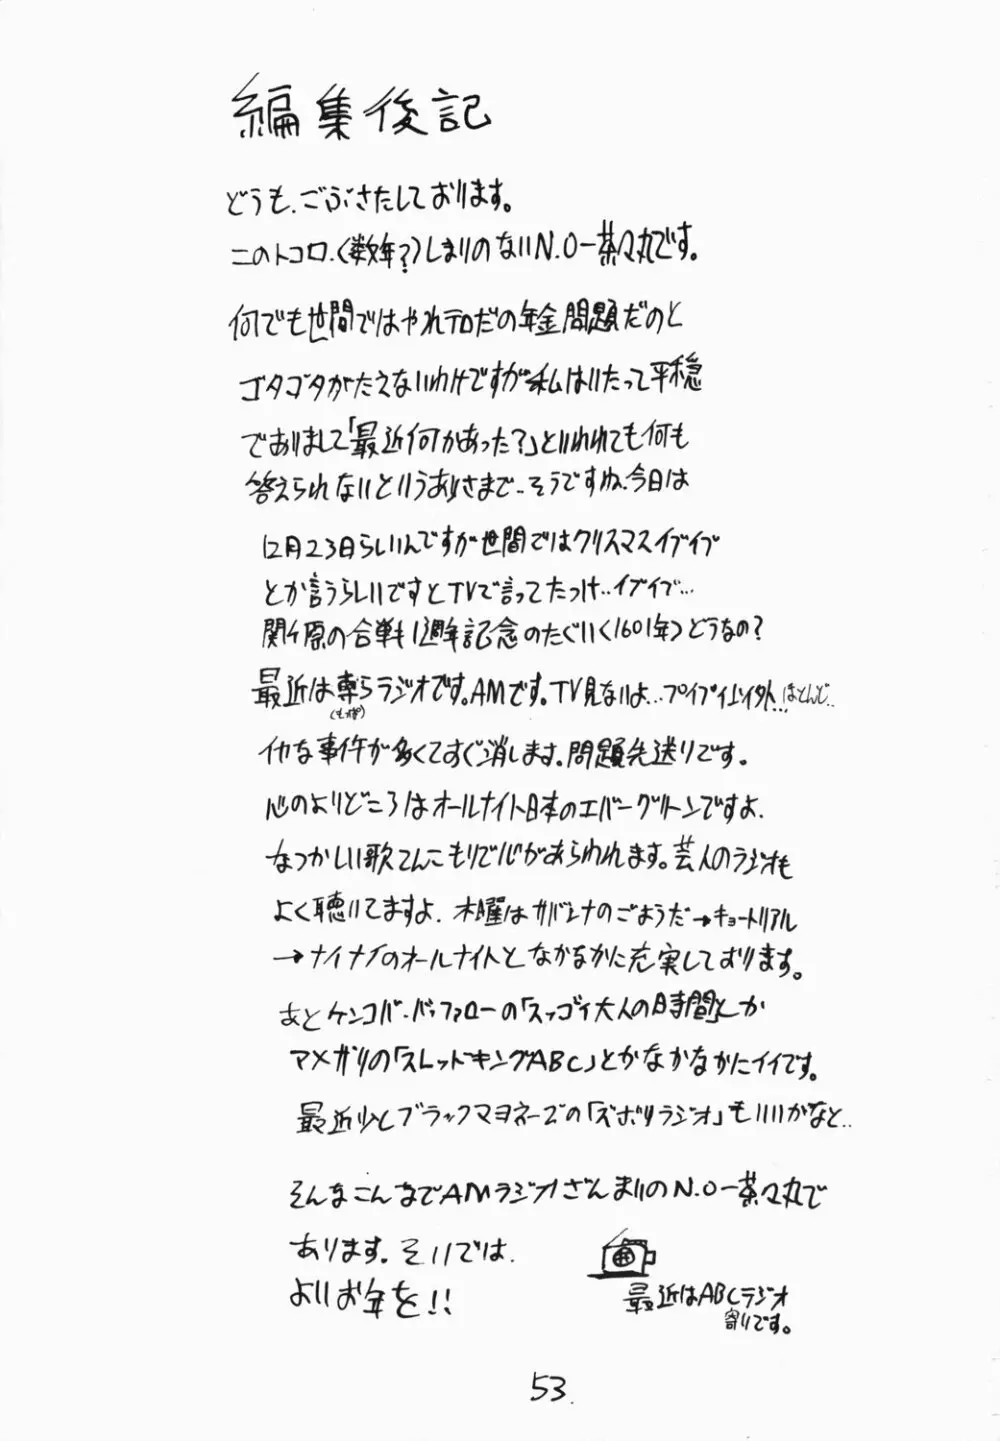 編集後記
どうも、ごぶさたしております。
このトコロ、(数年?)しまりのないN.O-茶々丸です。
何でも世間ではやれテロだの年金問題だのと
ゴタゴタがたえないわけですが私はいたって平穏
でありまして「最近何があった?」といわれても何も
答えられないというありさまで..そうですね、今日は
12月23日らしいんですが世間ではクリスマスイブイブ
とか言うらしいですとTVで言ってたっけ..イブイブ...
関ヶ原の合戦も1週年記念のたぐい(1601年)どうなの?
最近は専らラジオです。AMです。TV見ないよ...ブイブイ以外...ほとんど..
(もっぱ)
イヤな事件が多くてすぐ消します。問題先送りです。
心のよりどころはオールナイト日本のエバーグリーンですよ.
なつかしい歌てんこもりで心があらわれます。芸人のラジオも
よく聴いてますよ. 木曜はサバンナのごようだ→キョートリアル
→ナイナイのオールナイトとなかなかに充実しております。
あとケンコバ・バッファローの「スッゴイ大人の時間」とか
アメザリの「スレッドキングABC」とかなかなかにイイです。
最近少しブラックマヨネーズの「ズボリラジオ」もいいかなと..
そんなこんなでAMラジオざんまいのN.O-茶々丸で
あります。それでは.
よいお年を!!
最近はABCラジオ
寄りです。
53.